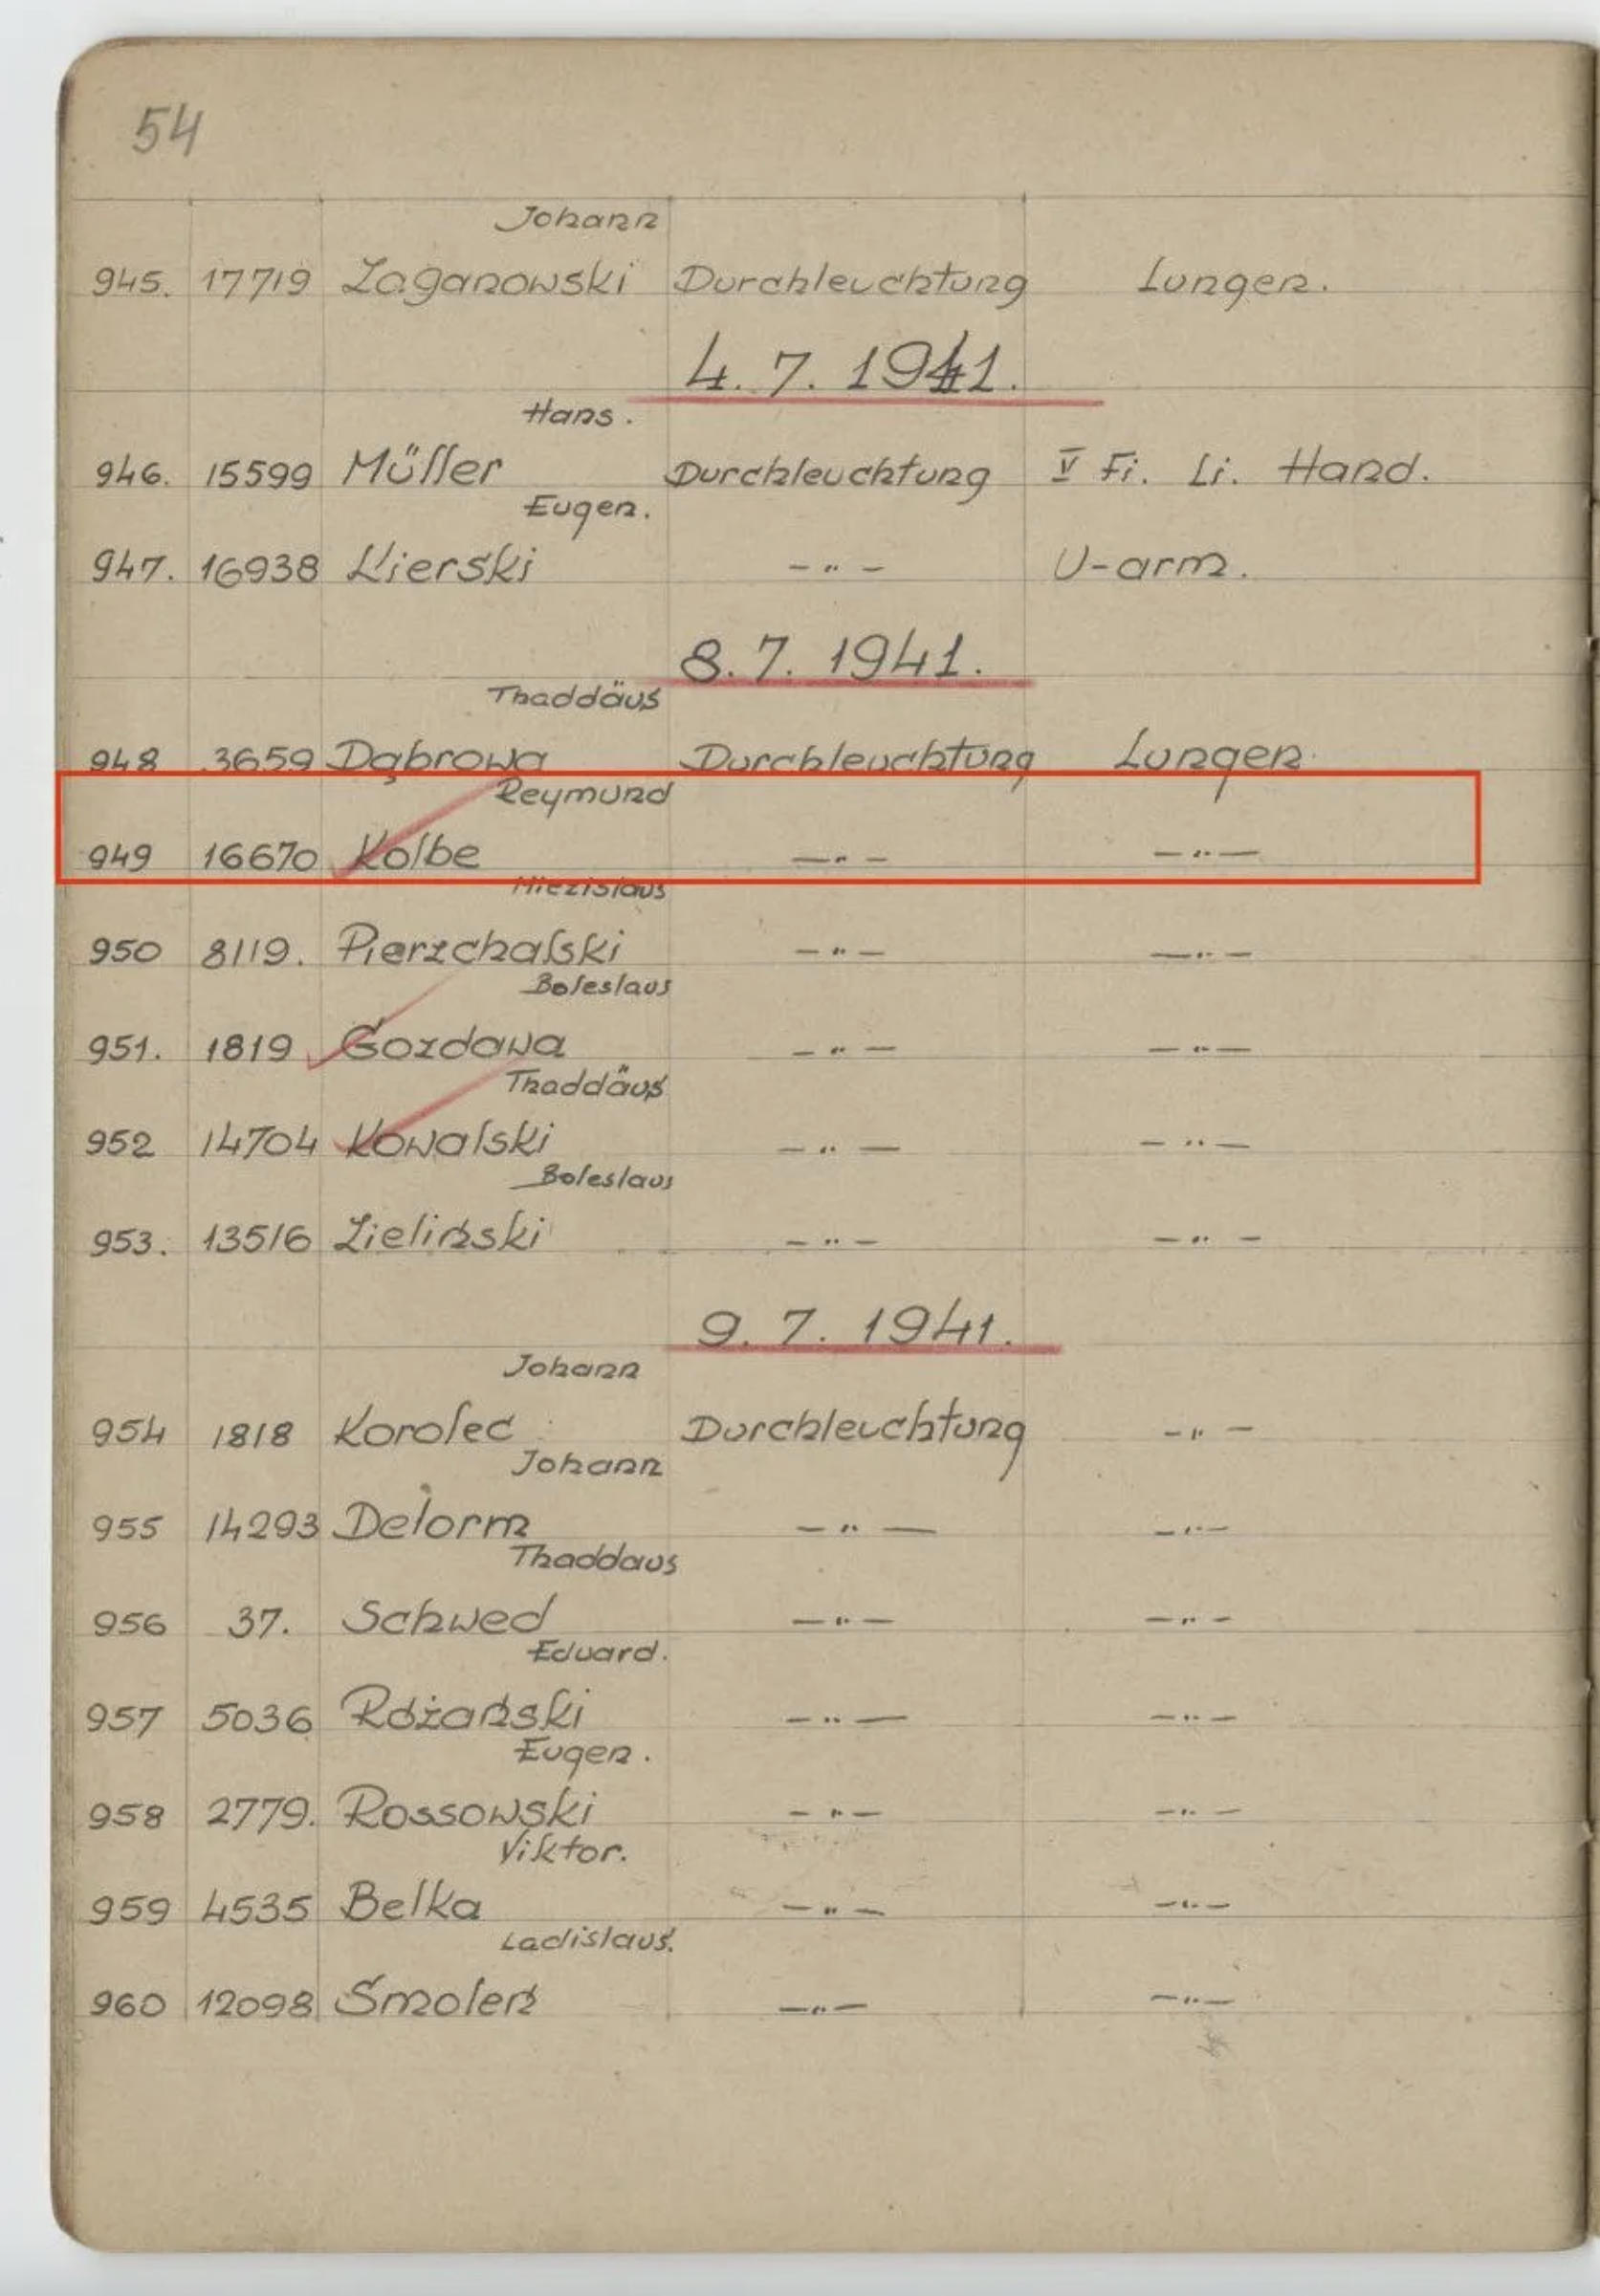 54
Johann
945. 17719 Zaganowski Durchleuchtung Lungen.
4. 7. 1941.
Hans.
946. 15599 Müller Durchleuchtung V Fi. Li. Hand.
Eugen.
947. 16938 Kierski -"- U-arm.
8. 7. 1941.
Thaddäus
948 3659 Dąbrowa Durchleuchtung Lungen
Reymund
949 16670 Kolbe -"- -"-
Miezislaus
950 8119. Pierzchalski -"- -"-
Boleslaus
951. 1819 Gozdawa -"- -"-
Thaddäus
952 14704 Kowalski -"- -"-
Boleslaus
953. 13516 Zieliński -"- -"-
9. 7. 1941.
Johann
954 1818 Korolec Durchleuchtung -"-
Johann
955 14293 Delorm -"- -"-
Thaddaus
956 37. Schwed -"- -"-
Eduard.
957 5036 Różański -"- -"-
Eugen.
958 2779. Rossowski -"- -"-
Viktor.
959 4535 Belka -"- -"-
Ladislaus.
960 12098 Smoleń -"- -"-